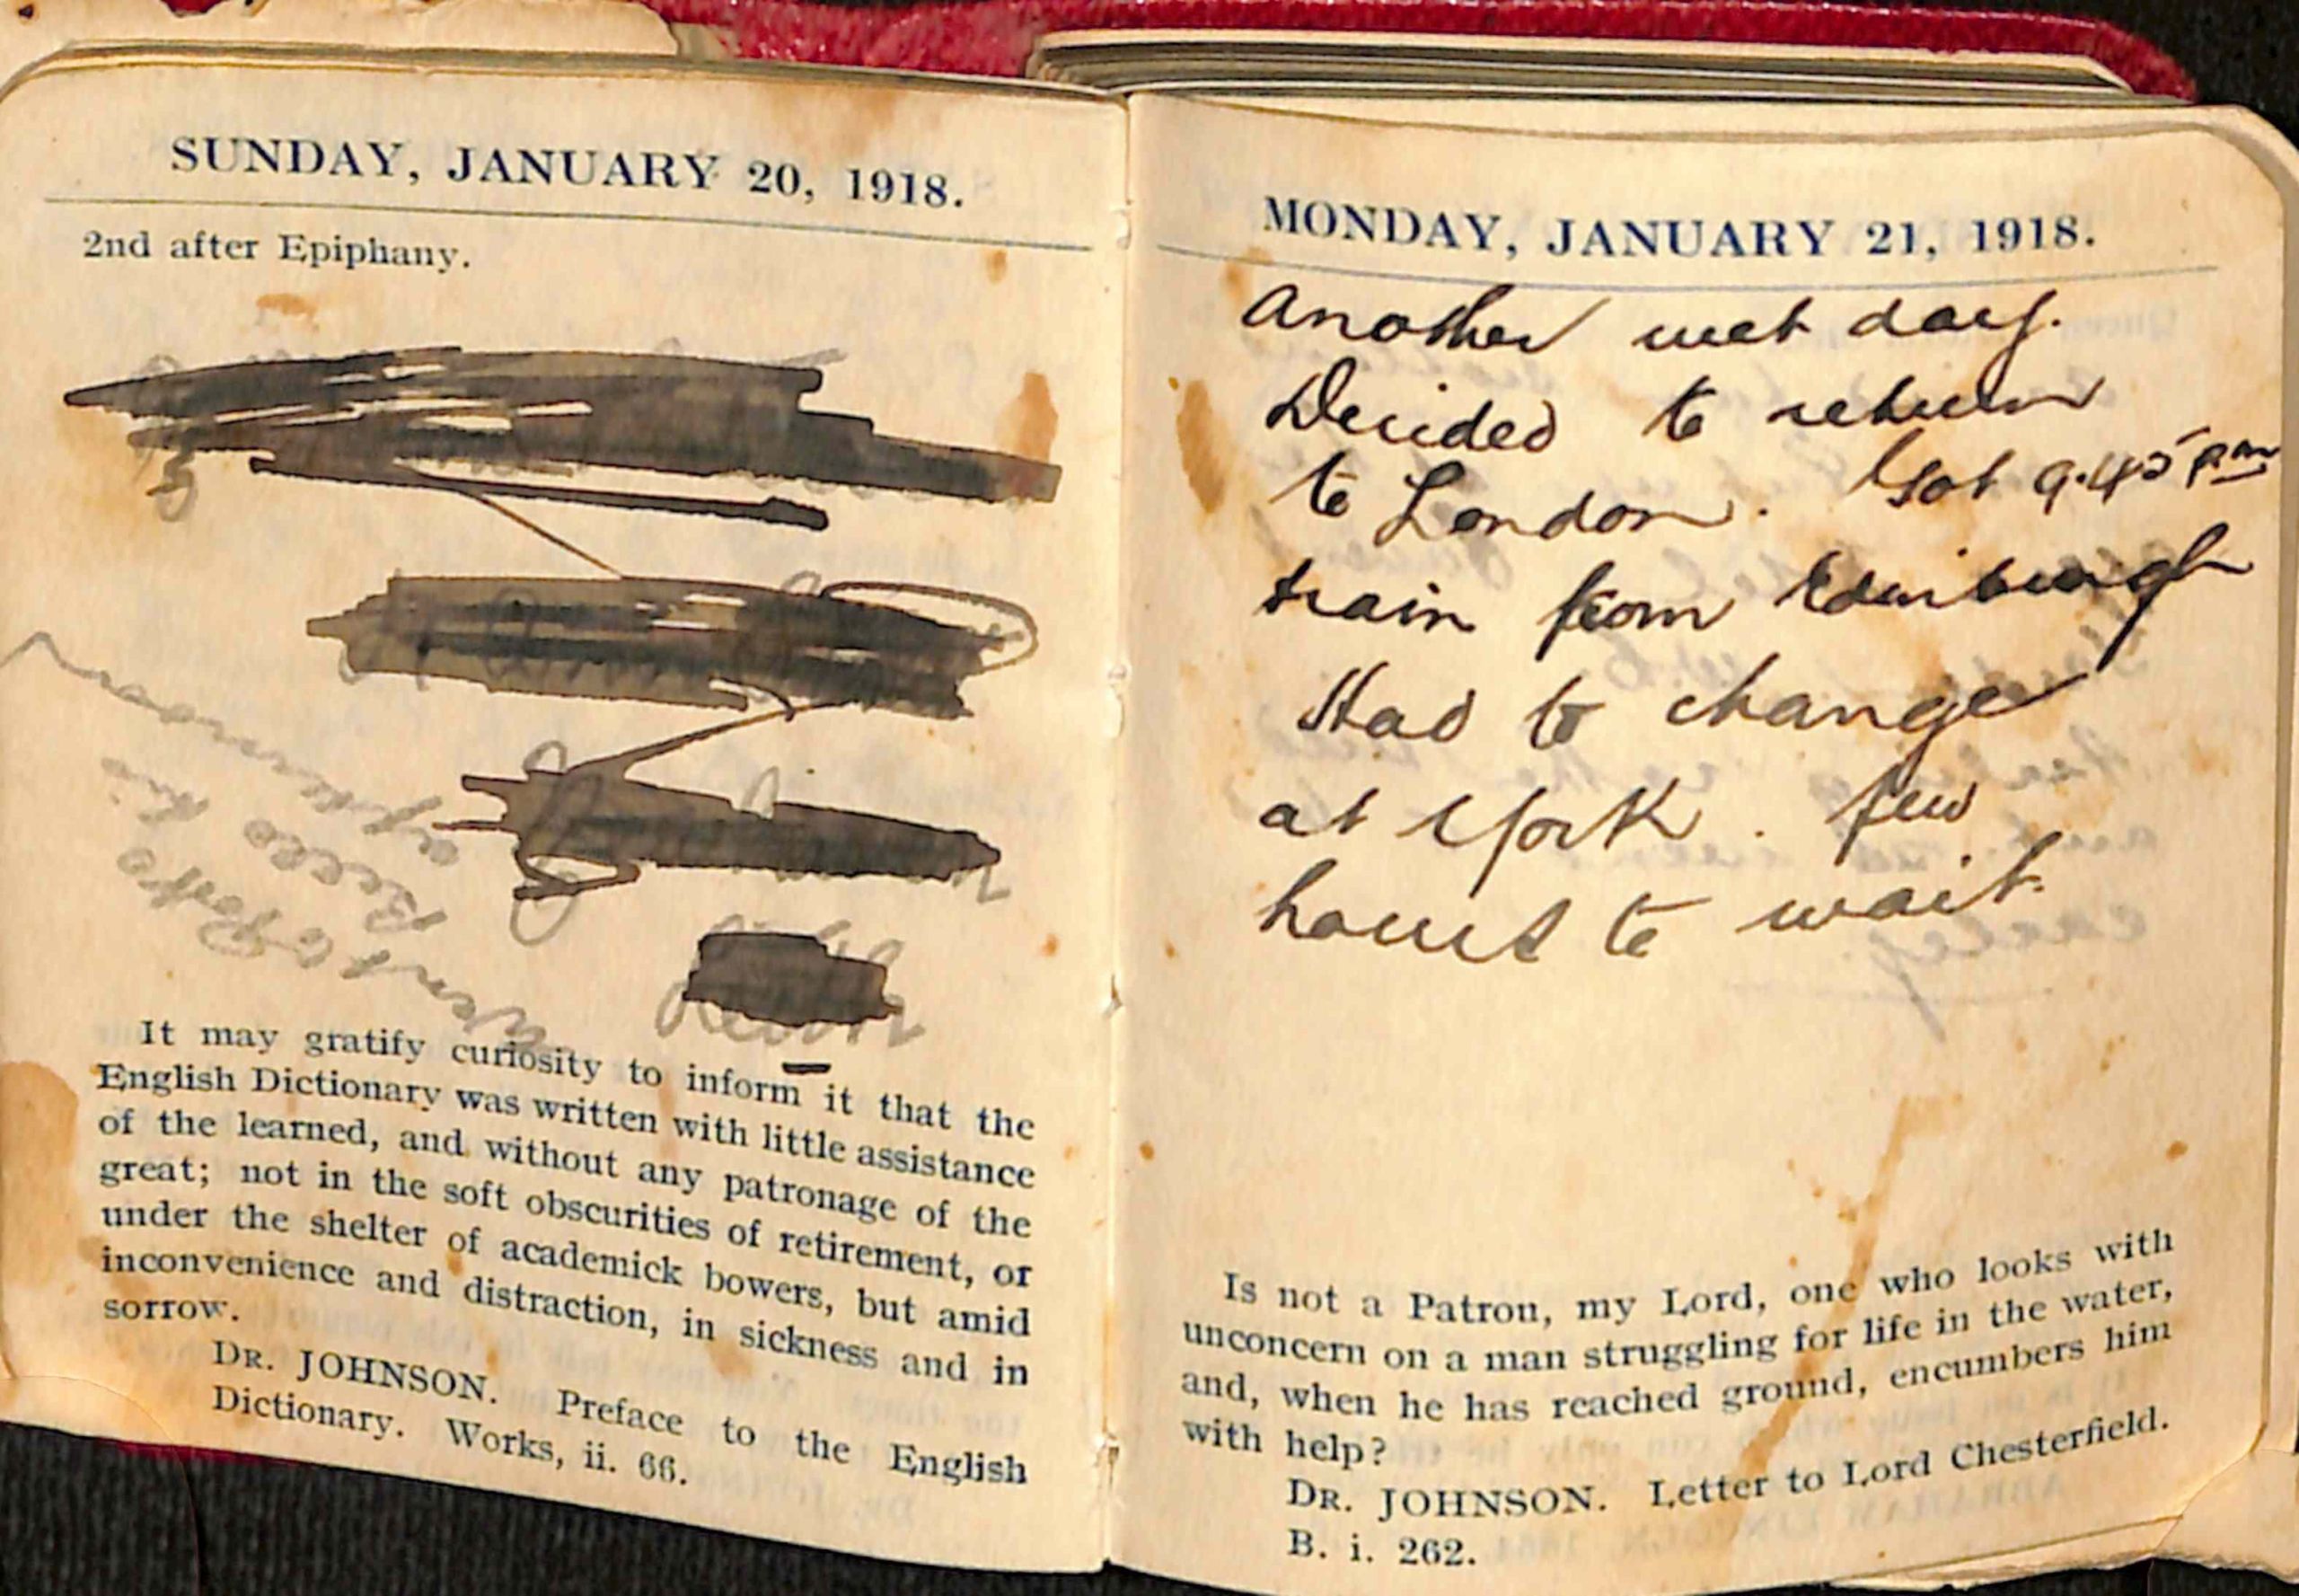 SUNDAY, JANUARY 20, 1918.
2nd after Epiphany.
went to Potto
Bello his
afternoon
It may gratify curiosity to inform it that the
English Dictionary was written with little assistance
of the learned, and without any patronage of the
great; not in the soft obscurities of retirement, or
under the shelter of academick bowers, but amid
inconvenience and distraction, in sickness and in
sorrow.
DR. JOHNSON. Preface to the English
Dictionary. Works, ii. 66.
MONDAY, JANUARY 21, 1918.
Another wet day.
Decided to return
to London. Got 9.45 pm
train from Edinburgh
Had to change
at York. few
hours to wait.
Is not a Patron, my Lord, one who looks with
unconcern on a man struggling for life in the water,
and, when he has reached ground, encumbers him
with help?
DR. JOHNSON. Letter to Lord Chesterfield.
B. i. 262.